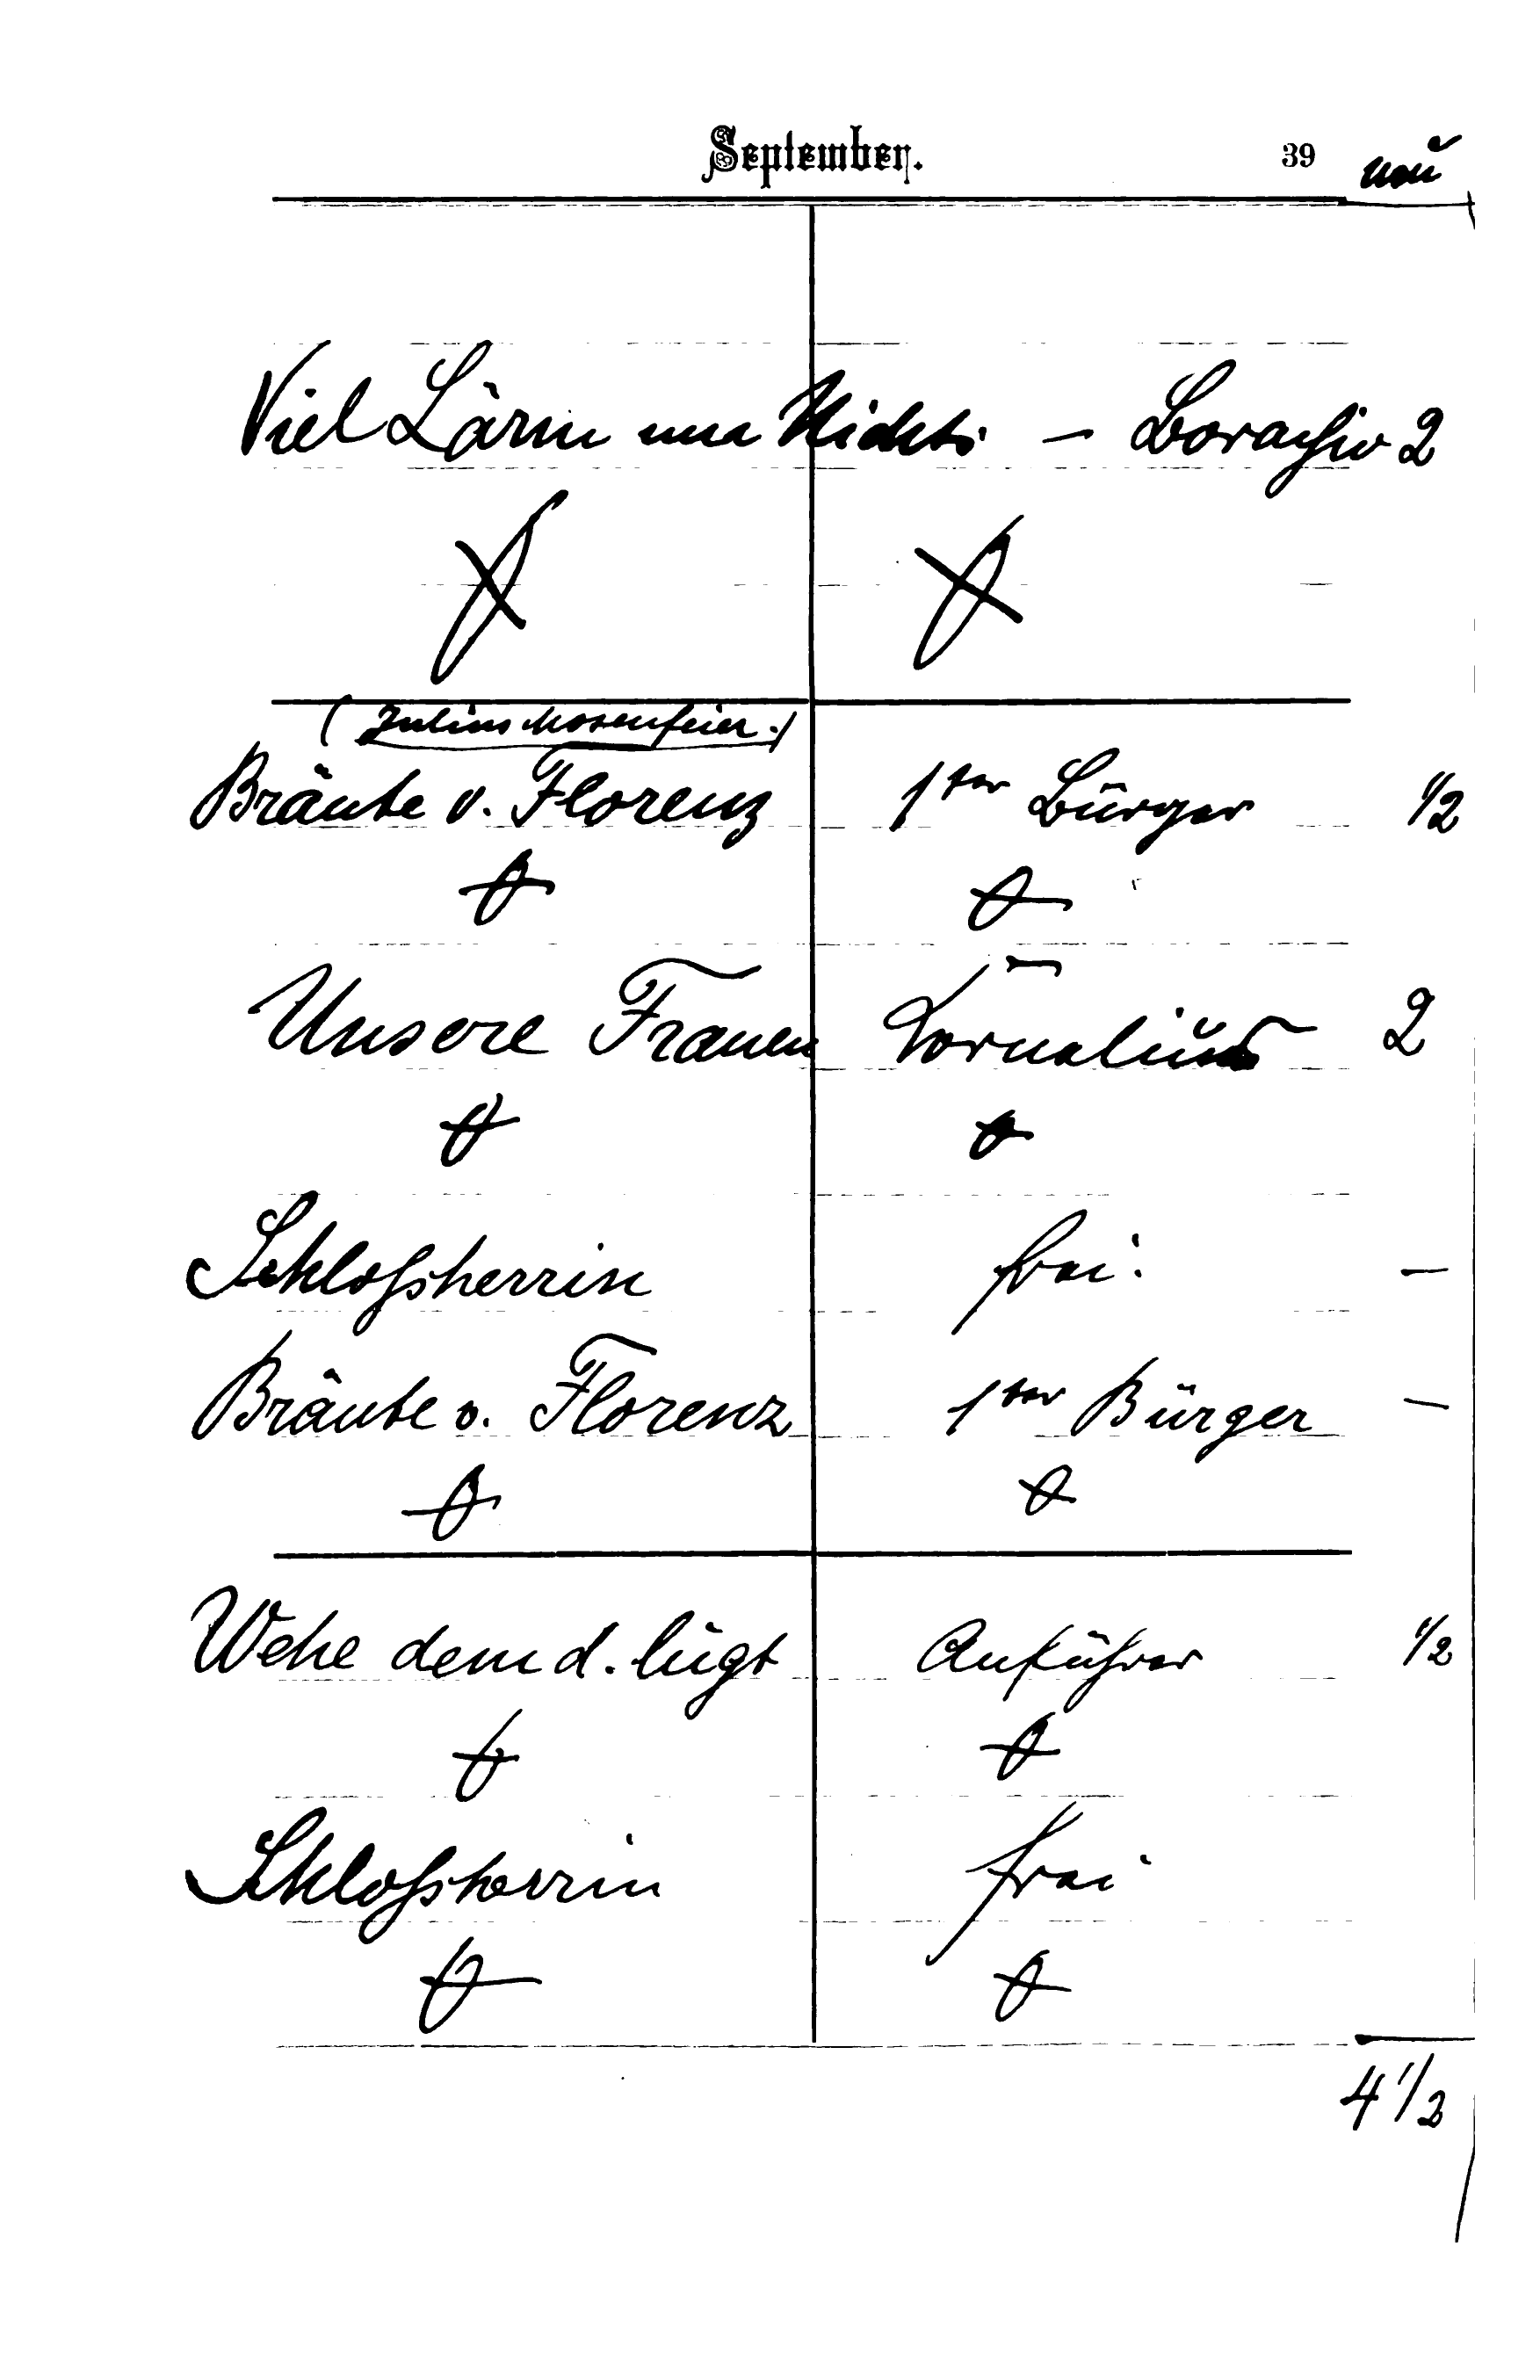 September. 39 neu
Viel Lärm um Nichts. – Borachio 2
(Julius Mosenfeier.)
Bräute v. Florenz 1ter Bürger 1/2
Unsere Frauen Cornelius 2
Schloßherrin frei. –
Bräute v. Florenz 1ter Bürger –
Wehe dem d. lügt Anführer 1/2
Schloßherrin frei
4 1/2